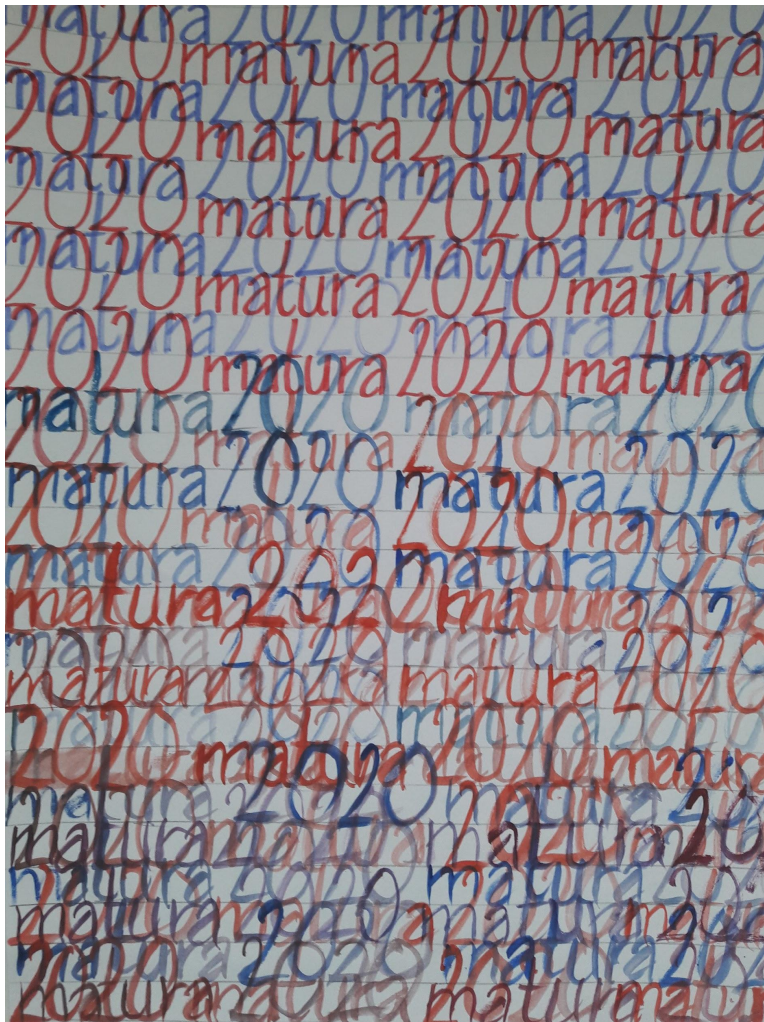 matura 2020 matura 2020
2020 matura 2020 matura
matura 2020 matura 2020
2020 matura 2020 matura
matura 2020 matura 2020
2020 matura 2020 matura
matura 2020 matura 2020
2020 matura 2020 matura
matura 2020 matura 2020
2020 matura 2020 matura
matura 2020 matura 2020
2020 matura 2020 matura
matura 2020 matura 2020
2020 matura 2020 matura
matura 2020 matura 2020
matura 2020 matura
matura 2020 matura 2020
matura matura 2020 matura 2020
matura 2020 matura 2020
2020 matura 2020 matura
matura 2020 matura 20
matura matura 20
matura 2020 matura 20
matura matura
matura 2020 matura 202
2020 matura matura matura matura